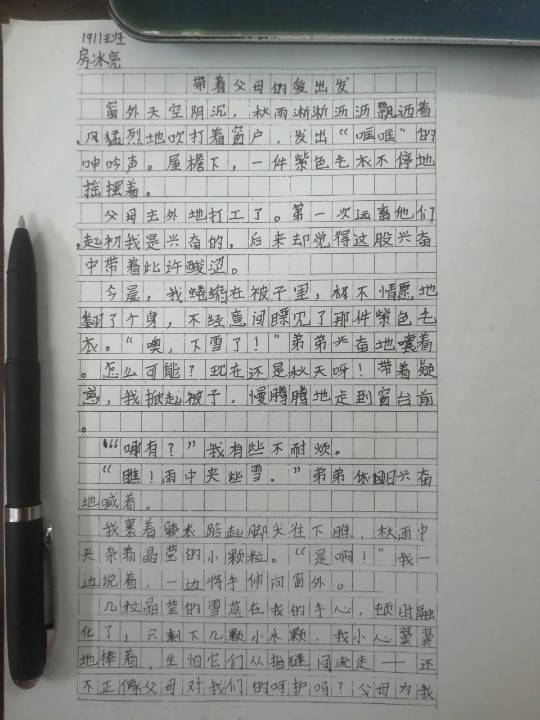 1911班
房冰亮
带着父母的爱出发
窗外天空阴沉，秋雨淅淅沥沥飘洒着
，风猛烈地吹打着窗户，发出“哐哐”的
呻吟声。屋檐下，一件紫色毛衣不停地
摇摆着。
父母去外地打工了。第一次远离他们
，起初我是兴奋的，后来却觉得这股兴奋
中带着些许酸涩。
今晨，我蜷缩在被子里，极不情愿地
翻了个身，不经意间瞟见了那件紫色毛
衣。“噢，下雪了！”弟弟兴奋地嚷着
。怎么可能？现在还是秋天呀！带着疑
惑，我掀起被子，慢腾腾地走到窗台前
。
“哪有？”我有些不耐烦。
“瞧！雨中夹些雪。”弟弟依旧兴奋
地喊着。
我裹着睡衣踮起脚尖往下瞧，秋雨中
夹杂着晶莹的小颗粒。“是啊！”我一
边说着，一边将手伸向窗外。
几粒晶莹的雪落在我的手心，顿时融
化了，只剩下几颗小水颗，我小心翼翼
地捧着，生怕它们从指缝间流走——还
不正像父母对我们的呵护吗？父母为我